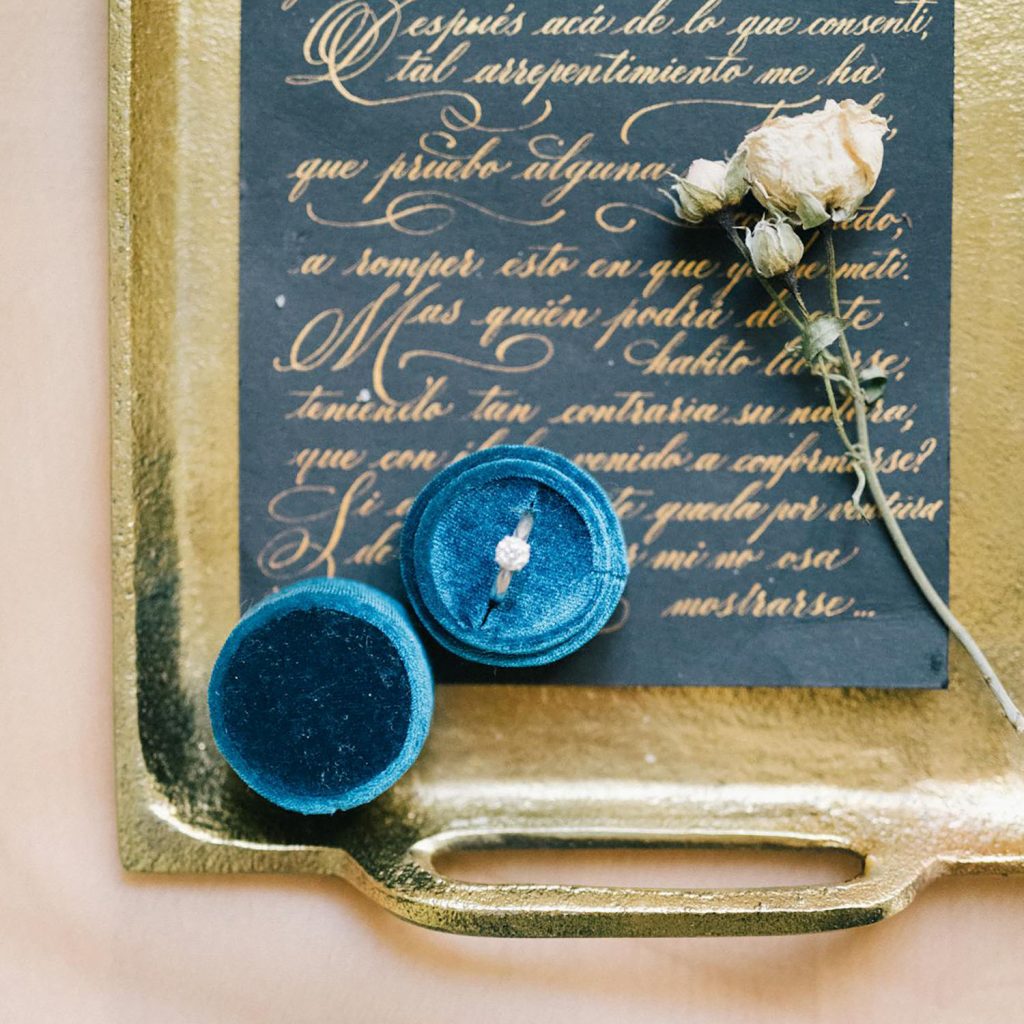 Después acá de lo que consentí,
tal arrepentimiento me ha
que pruebo alguna
a romper esto en que yo me metí.
Mas quién podrá de este
hábito librarse,
teniendo tan contraria su natura,
que con él ha venido a conformarse?
Si queda por ventura
de mi no osa
mostrarse...